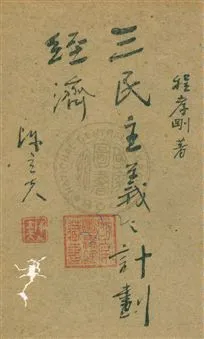 程孝剛著
三民主義之計劃
經濟
陳立夫